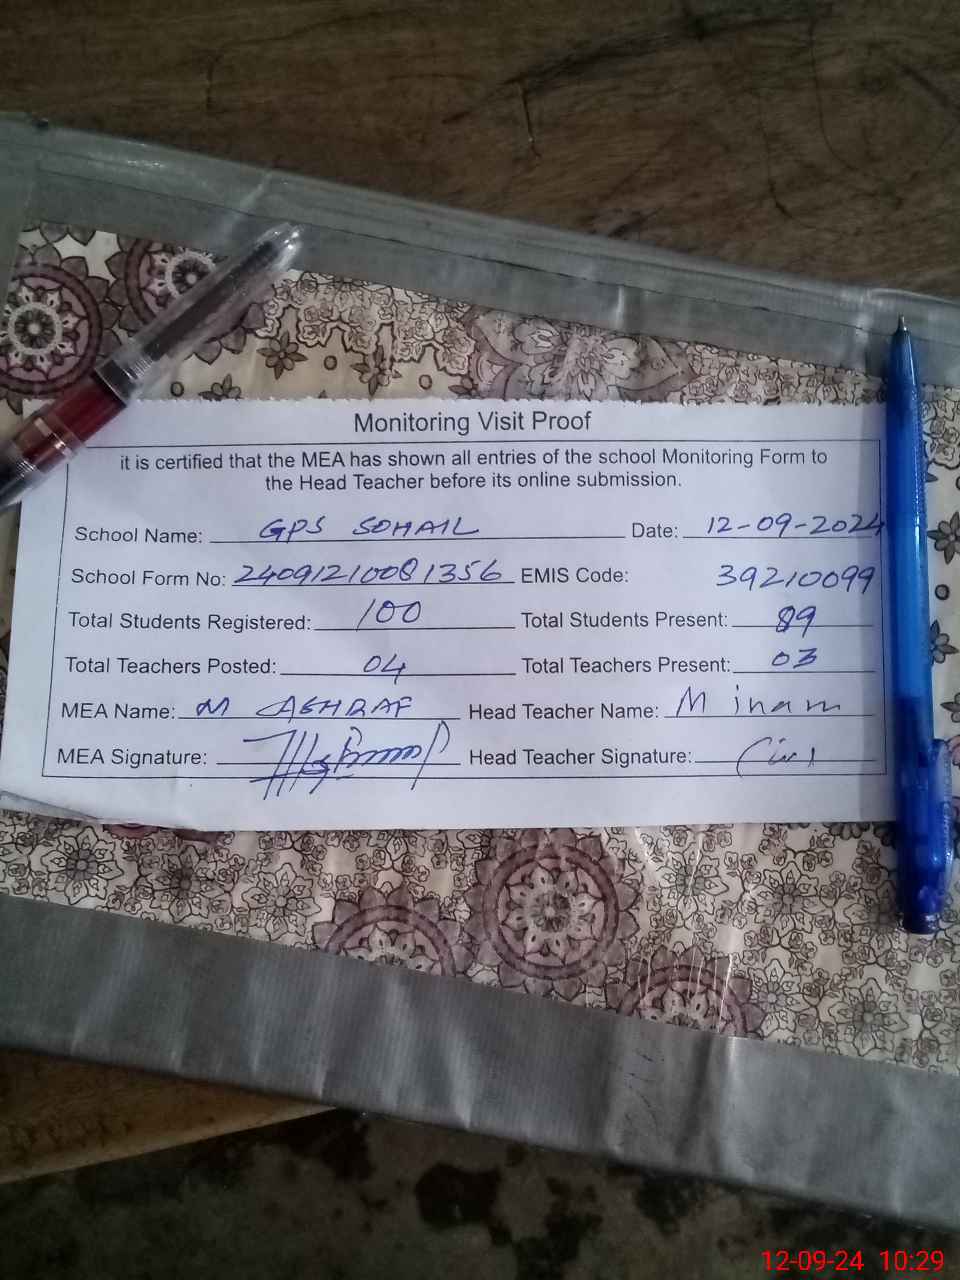 Monitoring Visit Proof
it is certified that the MEA has shown all entries of the school Monitoring Form to
the Head Teacher before its online submission.
School Name: GPS SOHAIL Date: 12-09-2024
School Form No: 24091210081356 EMIS Code: 39210099
Total Students Registered: 100 Total Students Present: 89
Total Teachers Posted: 04 Total Teachers Present: 03
MEA Name: M ASHRAF Head Teacher Name: M inam
MEA Signature: Head Teacher Signature:
12-09-24 10:29